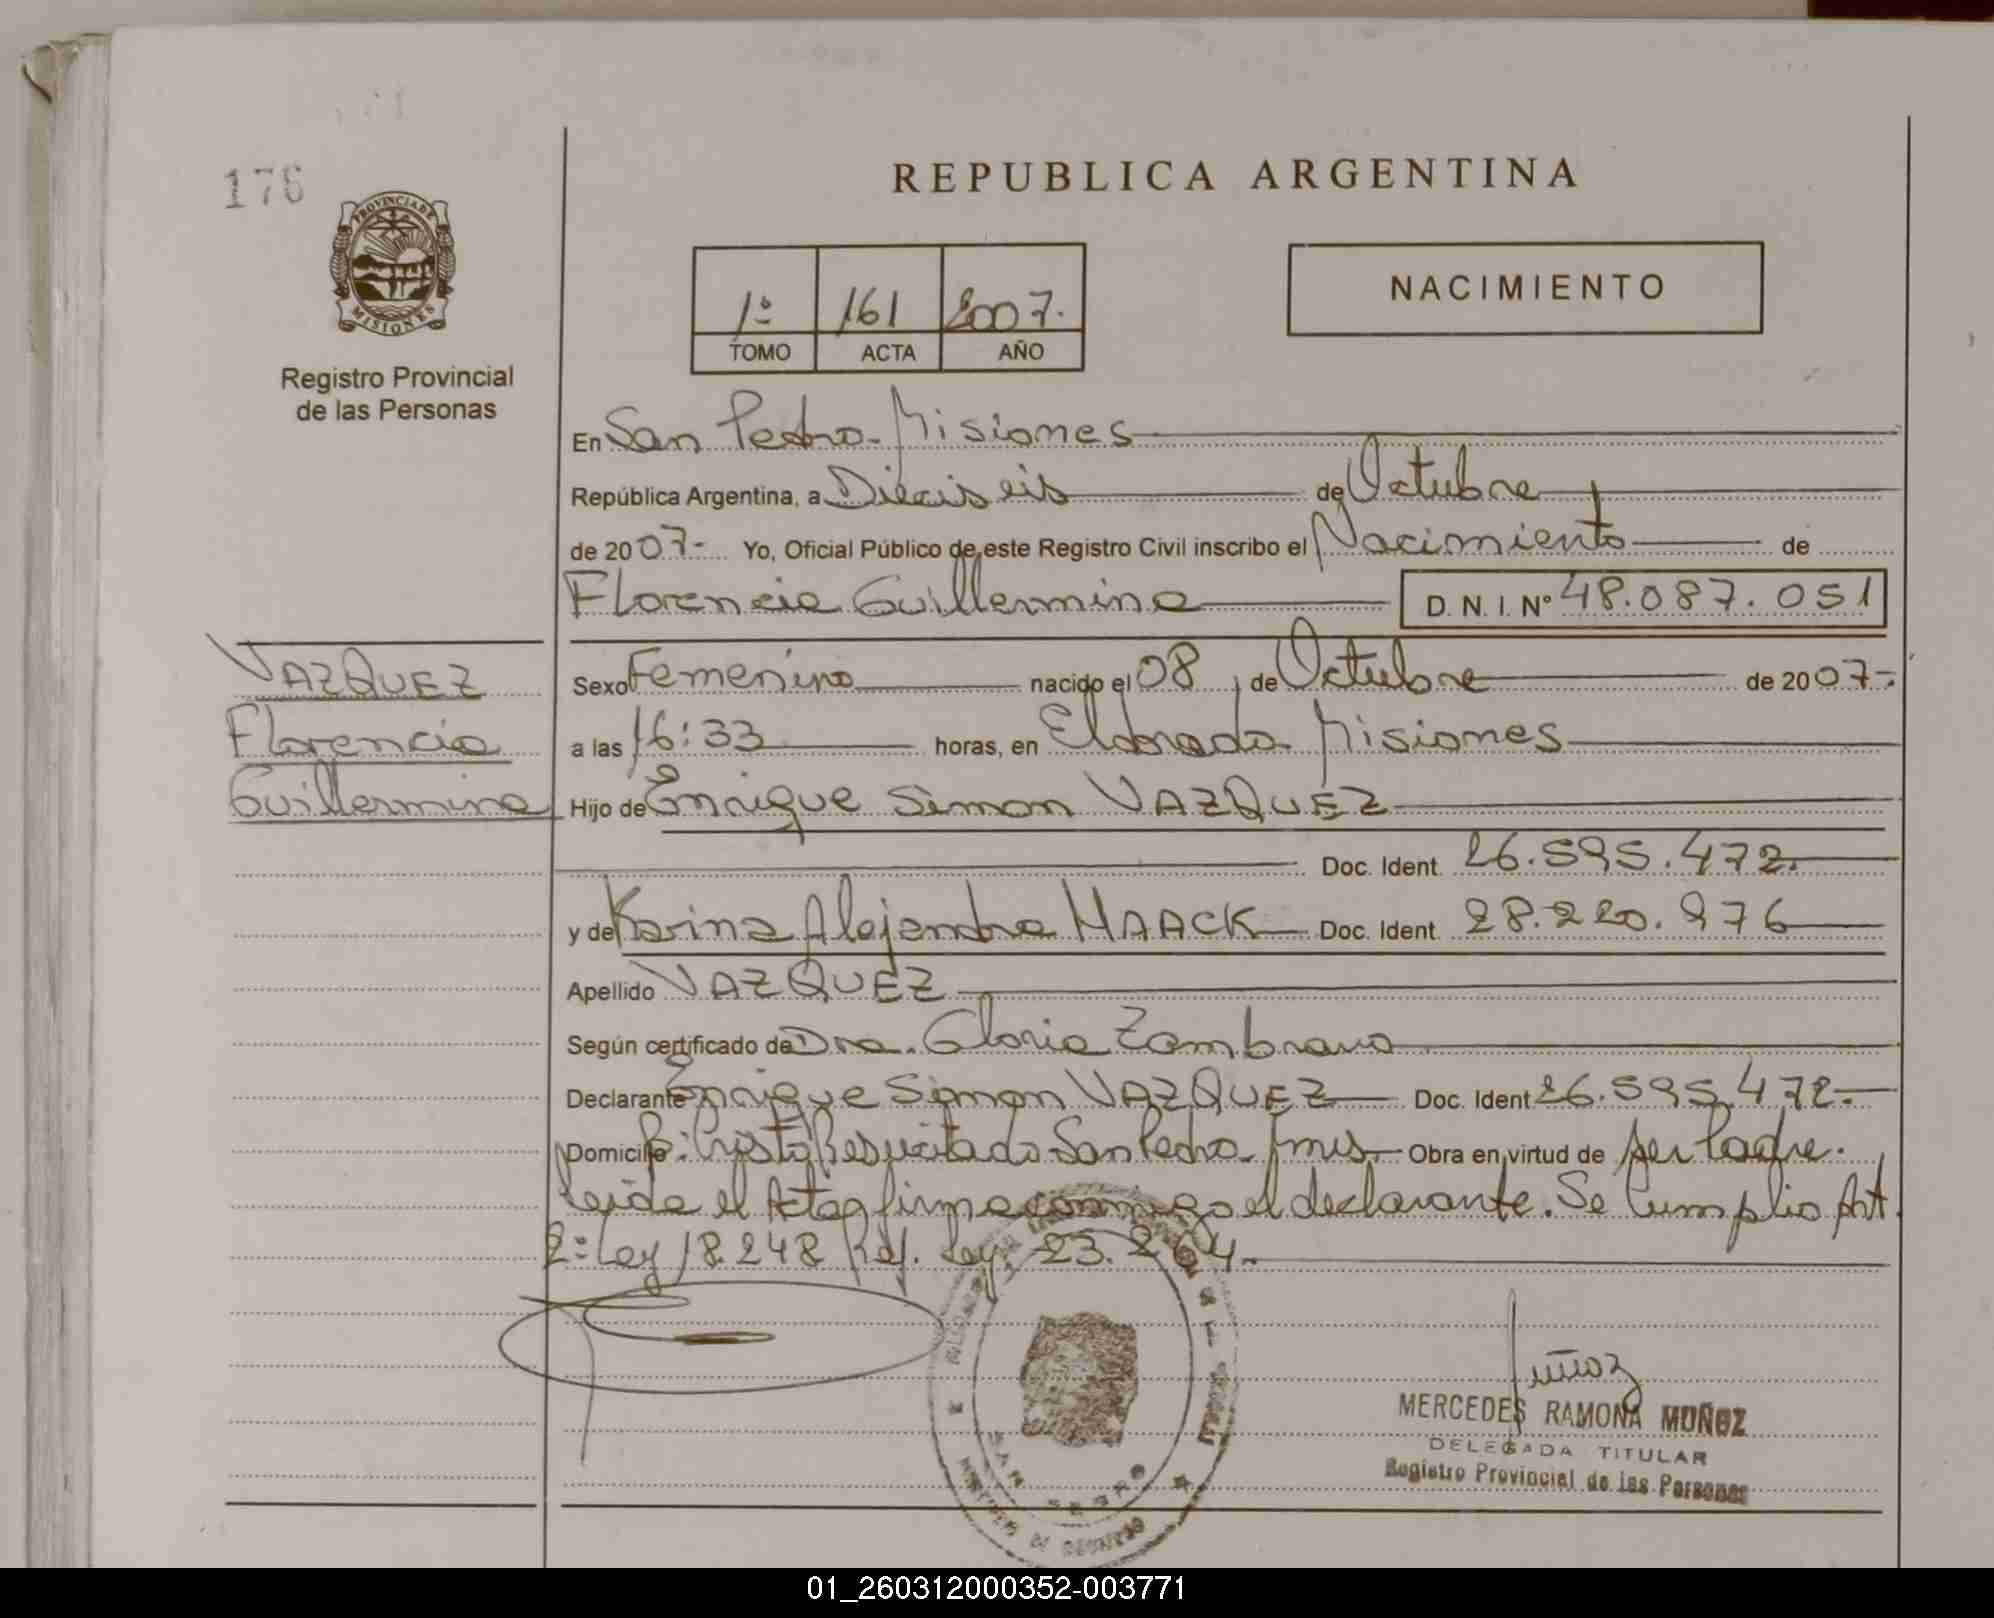 176
REPUBLICA ARGENTINA
PROVINCIA DE
MISIONES
Registro Provincial
de las Personas
1º 161 2007.
TOMO ACTA AÑO
NACIMIENTO
En San Pedro. Misiones
República Argentina, a Dieciseis de Octubre
de 2007- Yo, Oficial Público de este Registro Civil inscribo el Nacimiento de
Florencia Guillermina D. N. I. Nº 48.087.051
VAZQUEZ
Florencia
Guillermina
Sexo Femenino nacido el 08 de Octubre de 2007-
a las 16:33 horas, en Eldorado. Misiones
Hijo de Enrique Simon VAZQUEZ
Doc. Ident. 26.595.472.
y de Karina Alejandra HAACK Doc. Ident. 28.220.976
Apellido VAZQUEZ
Según certificado de Dra. Gloria Zambrano
Declarante Enrique Simon VAZQUEZ Doc. Ident 26.595.472.-
Domicilio B: Cristo Resucitado San Pedro. mis Obra en virtud de ser Padre.
Leida el Acta firma conmigo el declarante. Se Cumplio Art.
2º Ley 18.248 Ref. Ley 23.264.-
SAN PEDRO
Muñoz
MERCEDES RAMONA MUÑOZ
DELEGADA TITULAR
Registro Provincial de las Personas
01_260312000352-003771